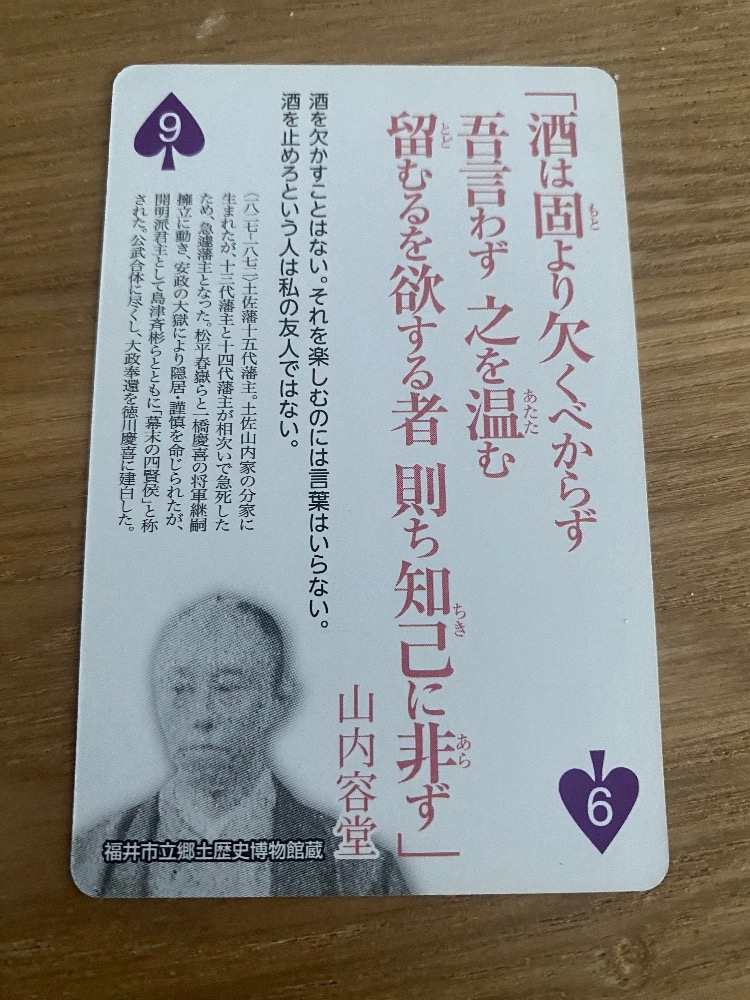 9
「酒は固より欠くべからず
もと
吾言わず 之を温む
あたた
留むるを欲する者 則ち知己に非ず」
とど
ちき
あら
山内容堂
酒を欠かすことはない。それを楽しむのには言葉はいらない。
酒を止めろという人は私の友人ではない。
(一八二七-一八七二)土佐藩十五代藩主。土佐山内家の分家に
生まれたが、十三代藩主と十四代藩主が相次いで急死した
ため、急遽藩主となった。松平春嶽らと一橋慶喜の将軍継嗣
擁立に動き、安政の大獄により隠居・謹慎を命じられたが、
開明派君主として島津斉彬らとともに「幕末の四賢侯」と称
された。公武合体に尽くし、大政奉還を徳川慶喜に建白した。
福井市立郷土歴史博物館蔵
9